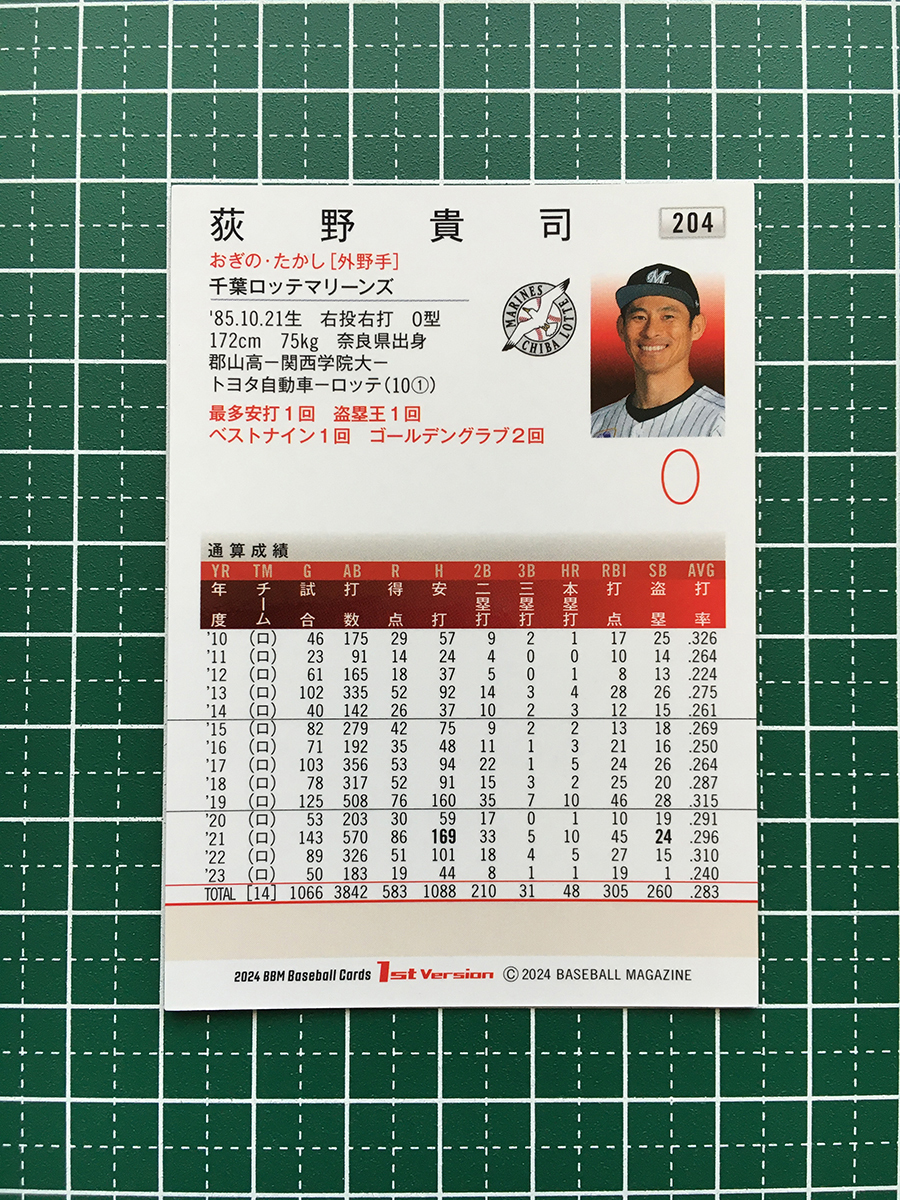 荻野貴司 204
おぎの・たかし[外野手]
千葉ロッテマリーンズ
MARINES CHIBA LOTTE
M
'85.10.21生 右投右打 O型
172cm 75kg 奈良県出身
郡山高ー関西学院大ー
トヨタ自動車ーロッテ(10①)
最多安打1回 盗塁王1回
ベストナイン1回 ゴールデングラブ2回
0
通算成績
YR TM G AB R H 2B 3B HR RBI SB AVG
年度 チーム 試合 打数 得点 安打 二塁打 三塁打 本塁打 打点 盗塁 打率
'10 (ロ) 46 175 29 57 9 2 1 17 25 .326
'11 (ロ) 23 91 14 24 4 0 0 10 14 .264
'12 (ロ) 61 165 18 37 5 0 1 8 13 .224
'13 (ロ) 102 335 52 92 14 3 4 28 26 .275
'14 (ロ) 40 142 26 37 10 2 3 12 15 .261
'15 (ロ) 82 279 42 75 9 2 2 13 18 .269
'16 (ロ) 71 192 35 48 11 1 3 21 16 .250
'17 (ロ) 103 356 53 94 22 1 5 24 26 .264
'18 (ロ) 78 317 52 91 15 3 2 25 20 .287
'19 (ロ) 125 508 76 160 35 7 10 46 28 .315
'20 (ロ) 53 203 30 59 17 0 1 10 19 .291
'21 (ロ) 143 570 86 169 33 5 10 45 24 .296
'22 (ロ) 89 326 51 101 18 4 5 27 15 .310
'23 (ロ) 50 183 19 44 8 1 1 19 1 .240
TOTAL [14] 1066 3842 583 1088 210 31 48 305 260 .283
2024 BBM Baseball Cards 1st Version ©2024 BASEBALL MAGAZINE